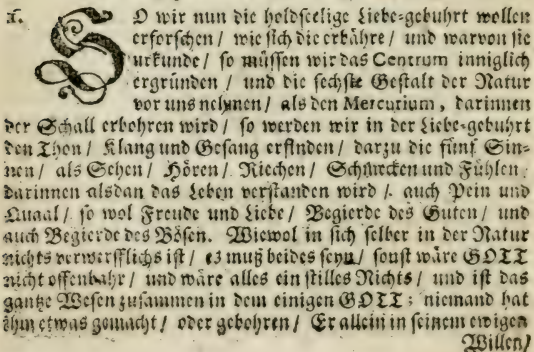 1. SO wir nun die holdseelige Liebe-gebuhrt wollen
erforschen / wie sich die erbähre / und warvon sie
urkunde / so müssen wir das Centrum inniglich
ergründen / und die sechste Gestalt der Natur
vor uns nehmen / als den Mercurium, darinnen
der Schall erbohren wird / so werden wir in der Liebe-gebuhrt
den Thon / Klang und Gesang erfinden / darzu die fünf Sin-
nen / als Sehen / Hören / Riechen / Schmecken und Fühlen /
darinnen alsdan das Leben verstanden wird / auch Pein und
Quaal / so wol Freude und Liebe / Begierde des Guten / und
auch Begierde des Bösen. Wiewol in sich selber in der Natur
nichts verwerfflichs ist / es muß beides seyn / sonst wäre GOTT
nicht offenbahr / und wäre alles ein stilles Nichts / und ist das
gantze Wesen zusammen in dem einigen GOTT; niemand hat
ihm etwas gemacht / oder gebohren / Er allein in seinem ewigen
Willen /